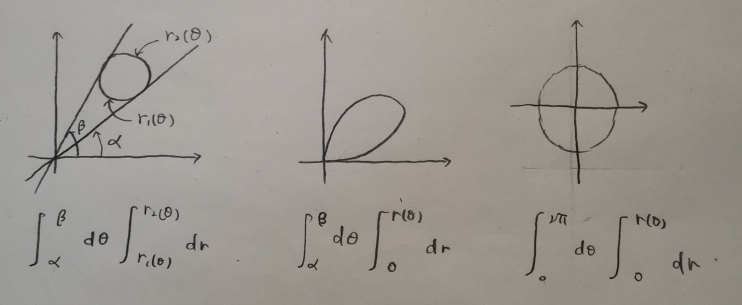 r₂(θ)
r₁(θ)
β
α
∫_α^β dθ ∫_{r₁(θ)}^{r₂(θ)} dr
∫_α^β dθ ∫_0^{r(θ)} dr
∫_0^{2π} dθ ∫_0^{r(θ)} dr.